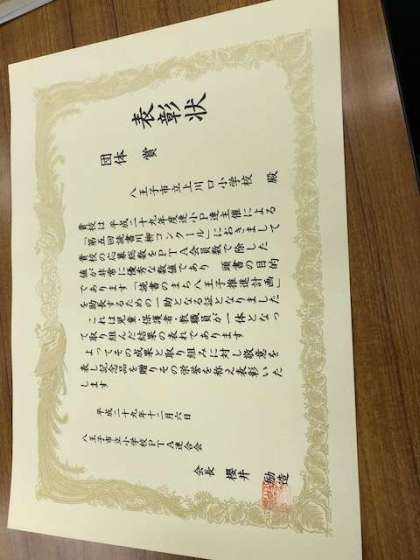 表彰状
団体賞
八王子市立上川口小学校 殿
貴校は平成二十九年度連小P連主催による
「第五回読書川柳コンクール」におきまして
貴校の応募総数をPTA会員数で除した
値が非常に優秀な数値であり 頭書の目的
であります「読書のまち八王子推進計画」
を助長するための一助となる証となりました
これは児童・保護者・教職員が一体となっ
て取り組んだ結果の表れであります
よってその成果と取り組みに対し敬意を
表し記念品を贈りその栄誉を称え表彰いた
します
平成二十九年十二月六日
八王子市立小学校PTA連合会
会長 櫻井 励造